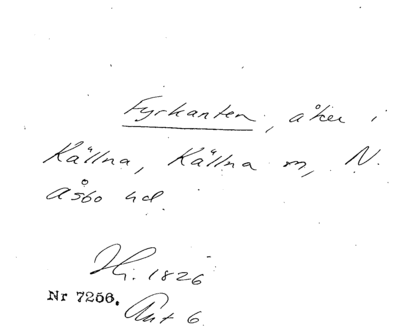 Fyrkanten, åker i
Källna, Källna sn, N.
Åsbo hd.
Hs. 1826
Nr 7256. Akt 6